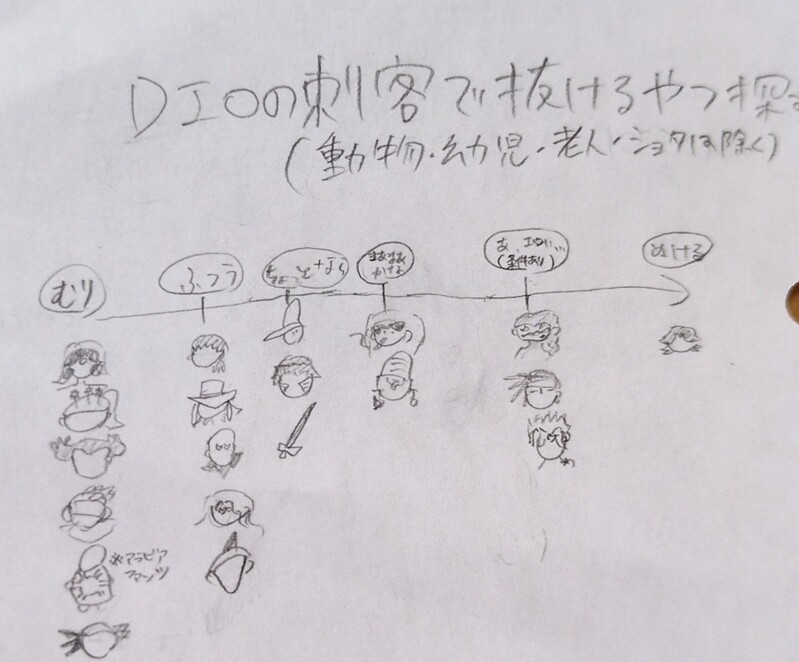 DIOの刺客で抜けるやつ探
(動物・幼児・老人・ショタは除く)
むり
ふつう
ちょっとなら
まあまあ
あ、エロい…
(条件あり)
ぬける
※アラビア
ファッツ